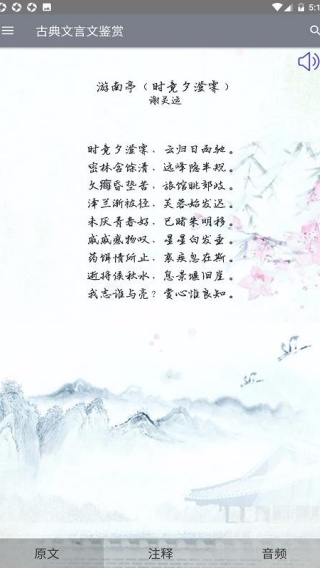 5:1
古典文言文鉴赏
游南亭（时竟夕澄霁）
谢灵运
时竟夕澄霁，云归日西驰。
密林含馀清，远峰隐半规。
久痗昏垫苦，旅馆眺郊歧。
泽兰渐被径，芙蓉始发迟。
未厌青春好，已睹朱明移。
戚戚感物叹，星星白发垂。
药饵情所止，衰疾忽在斯。
逝将候秋水，息景偃旧崖。
我志谁与亮？赏心惟良知。
原文
注释
音频